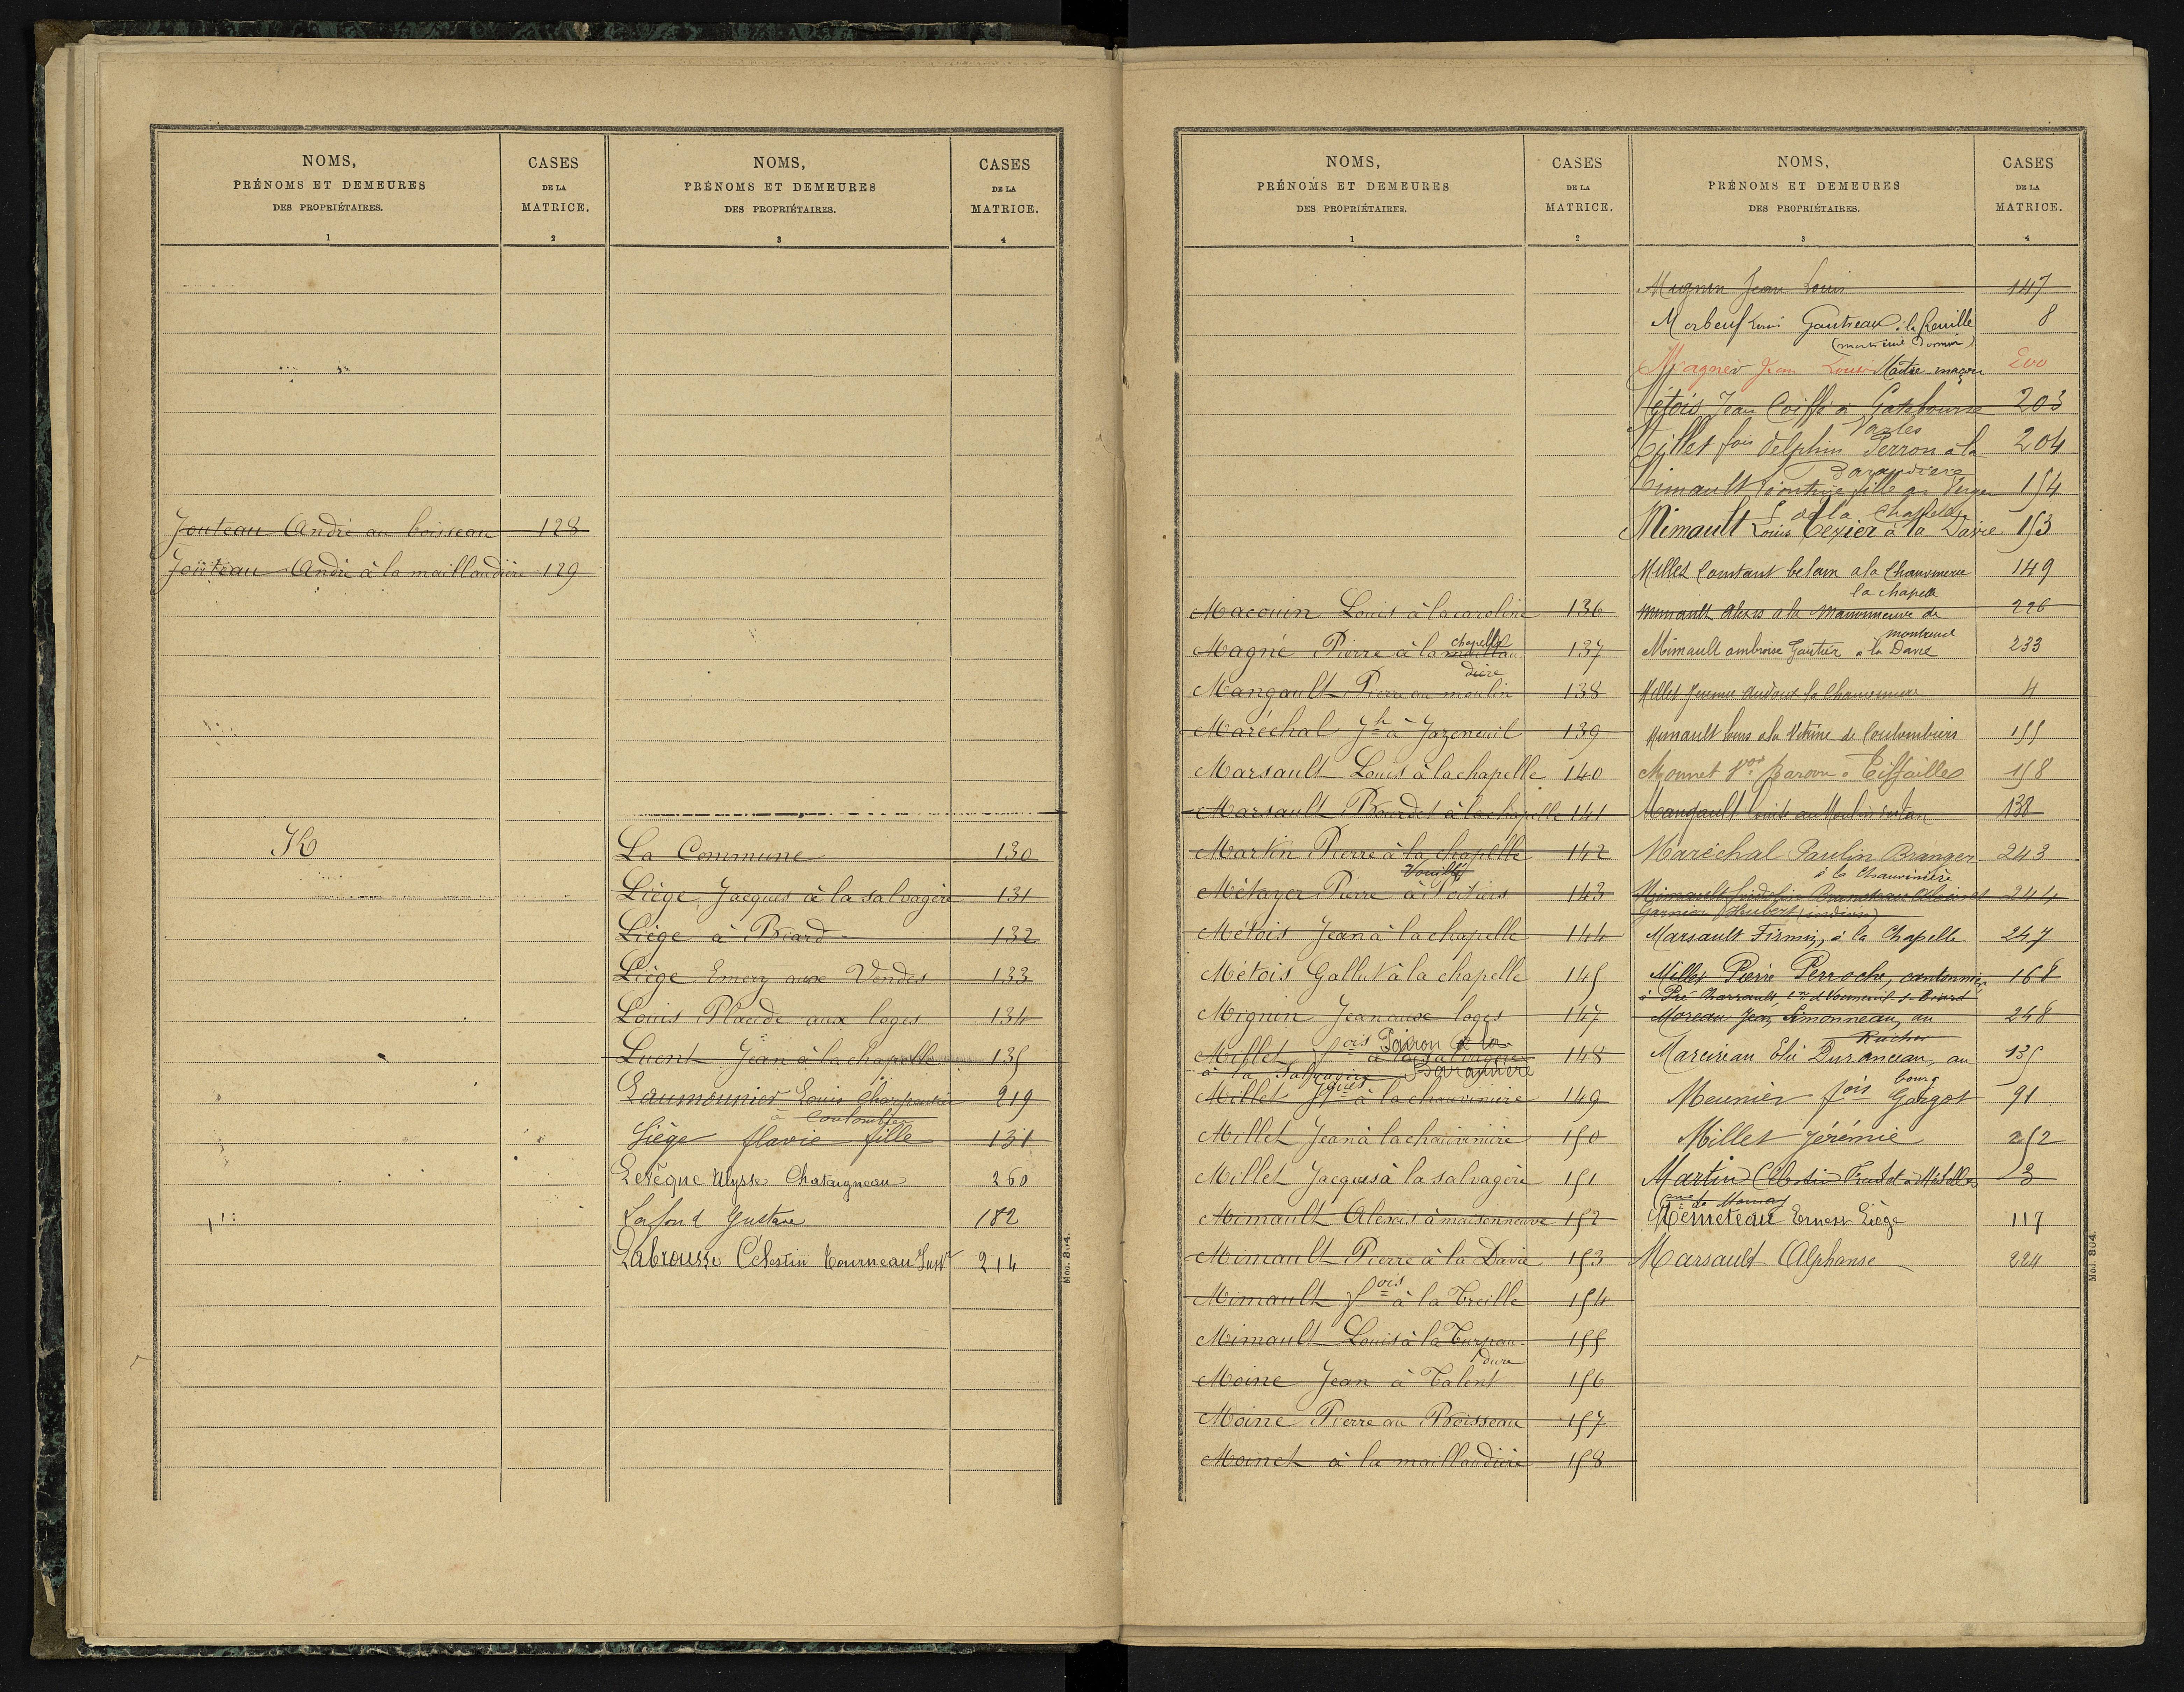 NOMS,
PRÉNOMS ET DEMEURES
DES PROPRIÉTAIRES.
1
CASES
DE LA
MATRICE.
2
Jouteau André au boisseau 128
Joüteau André à la maillaudière 129
K
NOMS,
PRÉNOMS ET DEMEURES
DES PROPRIÉTAIRES.
3
CASES
DE LA
MATRICE.
4
La Commune 130
Liège Jacques à la salvagère 131
Liège à Biard 132
Liège Emery aux Vendes 133
Louis Placide aux loges 134
Luent Jean à la chapelle 135
Laumounier Louis Charpentier 219
à Coulombiers
Liège flavie fille 131
Levêque Ulysse Chataigneau 260
Lafond Gustave 182
Labrousse Célestin Tourneau 214
Mod. 804.
NOMS,
PRÉNOMS ET DEMEURES
DES PROPRIÉTAIRES.
1
CASES
DE LA
MATRICE.
2
Macouin Louis à la caroline 136
Magné Pierre à la chapelle maillau 137
dière
Mangault Pierre au moulin 138
Maréchal Jh à Jazeneuil 139
Marsault Louis à la chapelle 140
Marsault Bourdet à la chapelle 141
Martin Pierre à la chapelle 142
Vouillé
Métayer Pierre à Poitiers 143
Métois Jean à la chapelle 144
Métois Gallut à la chapelle 145
Mignin Jean aux loges 147
Millet fois Pairon à la 148
à la salvagère Barandière
Millet Jques à la chauvinière 149
Millet Jean à la chauvinière 150
Millet Jacques à la salvagère 151
Mimault Alexis à maisonneuve 152
Mimault Pierre à la Davie 153
Mimault fois à la Treille 154
Mimault Louis à la Turpau 155
dière
Moine Jean à Talent 156
Moine Pierre au Boisseau 157
Moinet à la maillaudière 158
NOMS,
PRÉNOMS ET DEMEURES
DES PROPRIÉTAIRES.
3
CASES
DE LA
MATRICE.
4
Mignin Jean Louis 147
Morbeuf Louis Gautreau à la 8
Magner Jean Louis Maître-maçon 200
Métois Jean Coiffé à 203
Millet fois Delphin Perron à la 204
Barandière
Mimault fille au Verger 154
de la Chapelle
Mimault Louis Texier à la Davie 153
Millet Constant belam a la Chauvinerie 149
la chapelle
Mimault Alexis a la Maisonneuve de 226
montreuil
Mimault ambroise Gautier à la Davie 233
Millet audoux la Chauviniere 4
Mimault Louis a la Vitrine de Coulombiers 155
Monnet Vor Baron à Tiffailles 158
Mangault Louis au Moulin 138
Maréchal Paulin Branger 243
à la Chauvinière
Mimault 244
Garnier Hubert (indivis)
Marsault Firmin, à la Chapelle 247
Millet Pierre Perroche, cantonnier 168
à Pré Charrault cne de Vouneuil s. Biard
Moreau Jean Simonneau, au 248
Rucher
Marcireau Elie Duranceau, au 135
bourg
Meunier fois Gargot 91
Millet Jérémie 252
Martin Célestin 3
Cne de
Mémeteau Ernest Liège 117
Marsault Alphonse 224
Mod. 804.